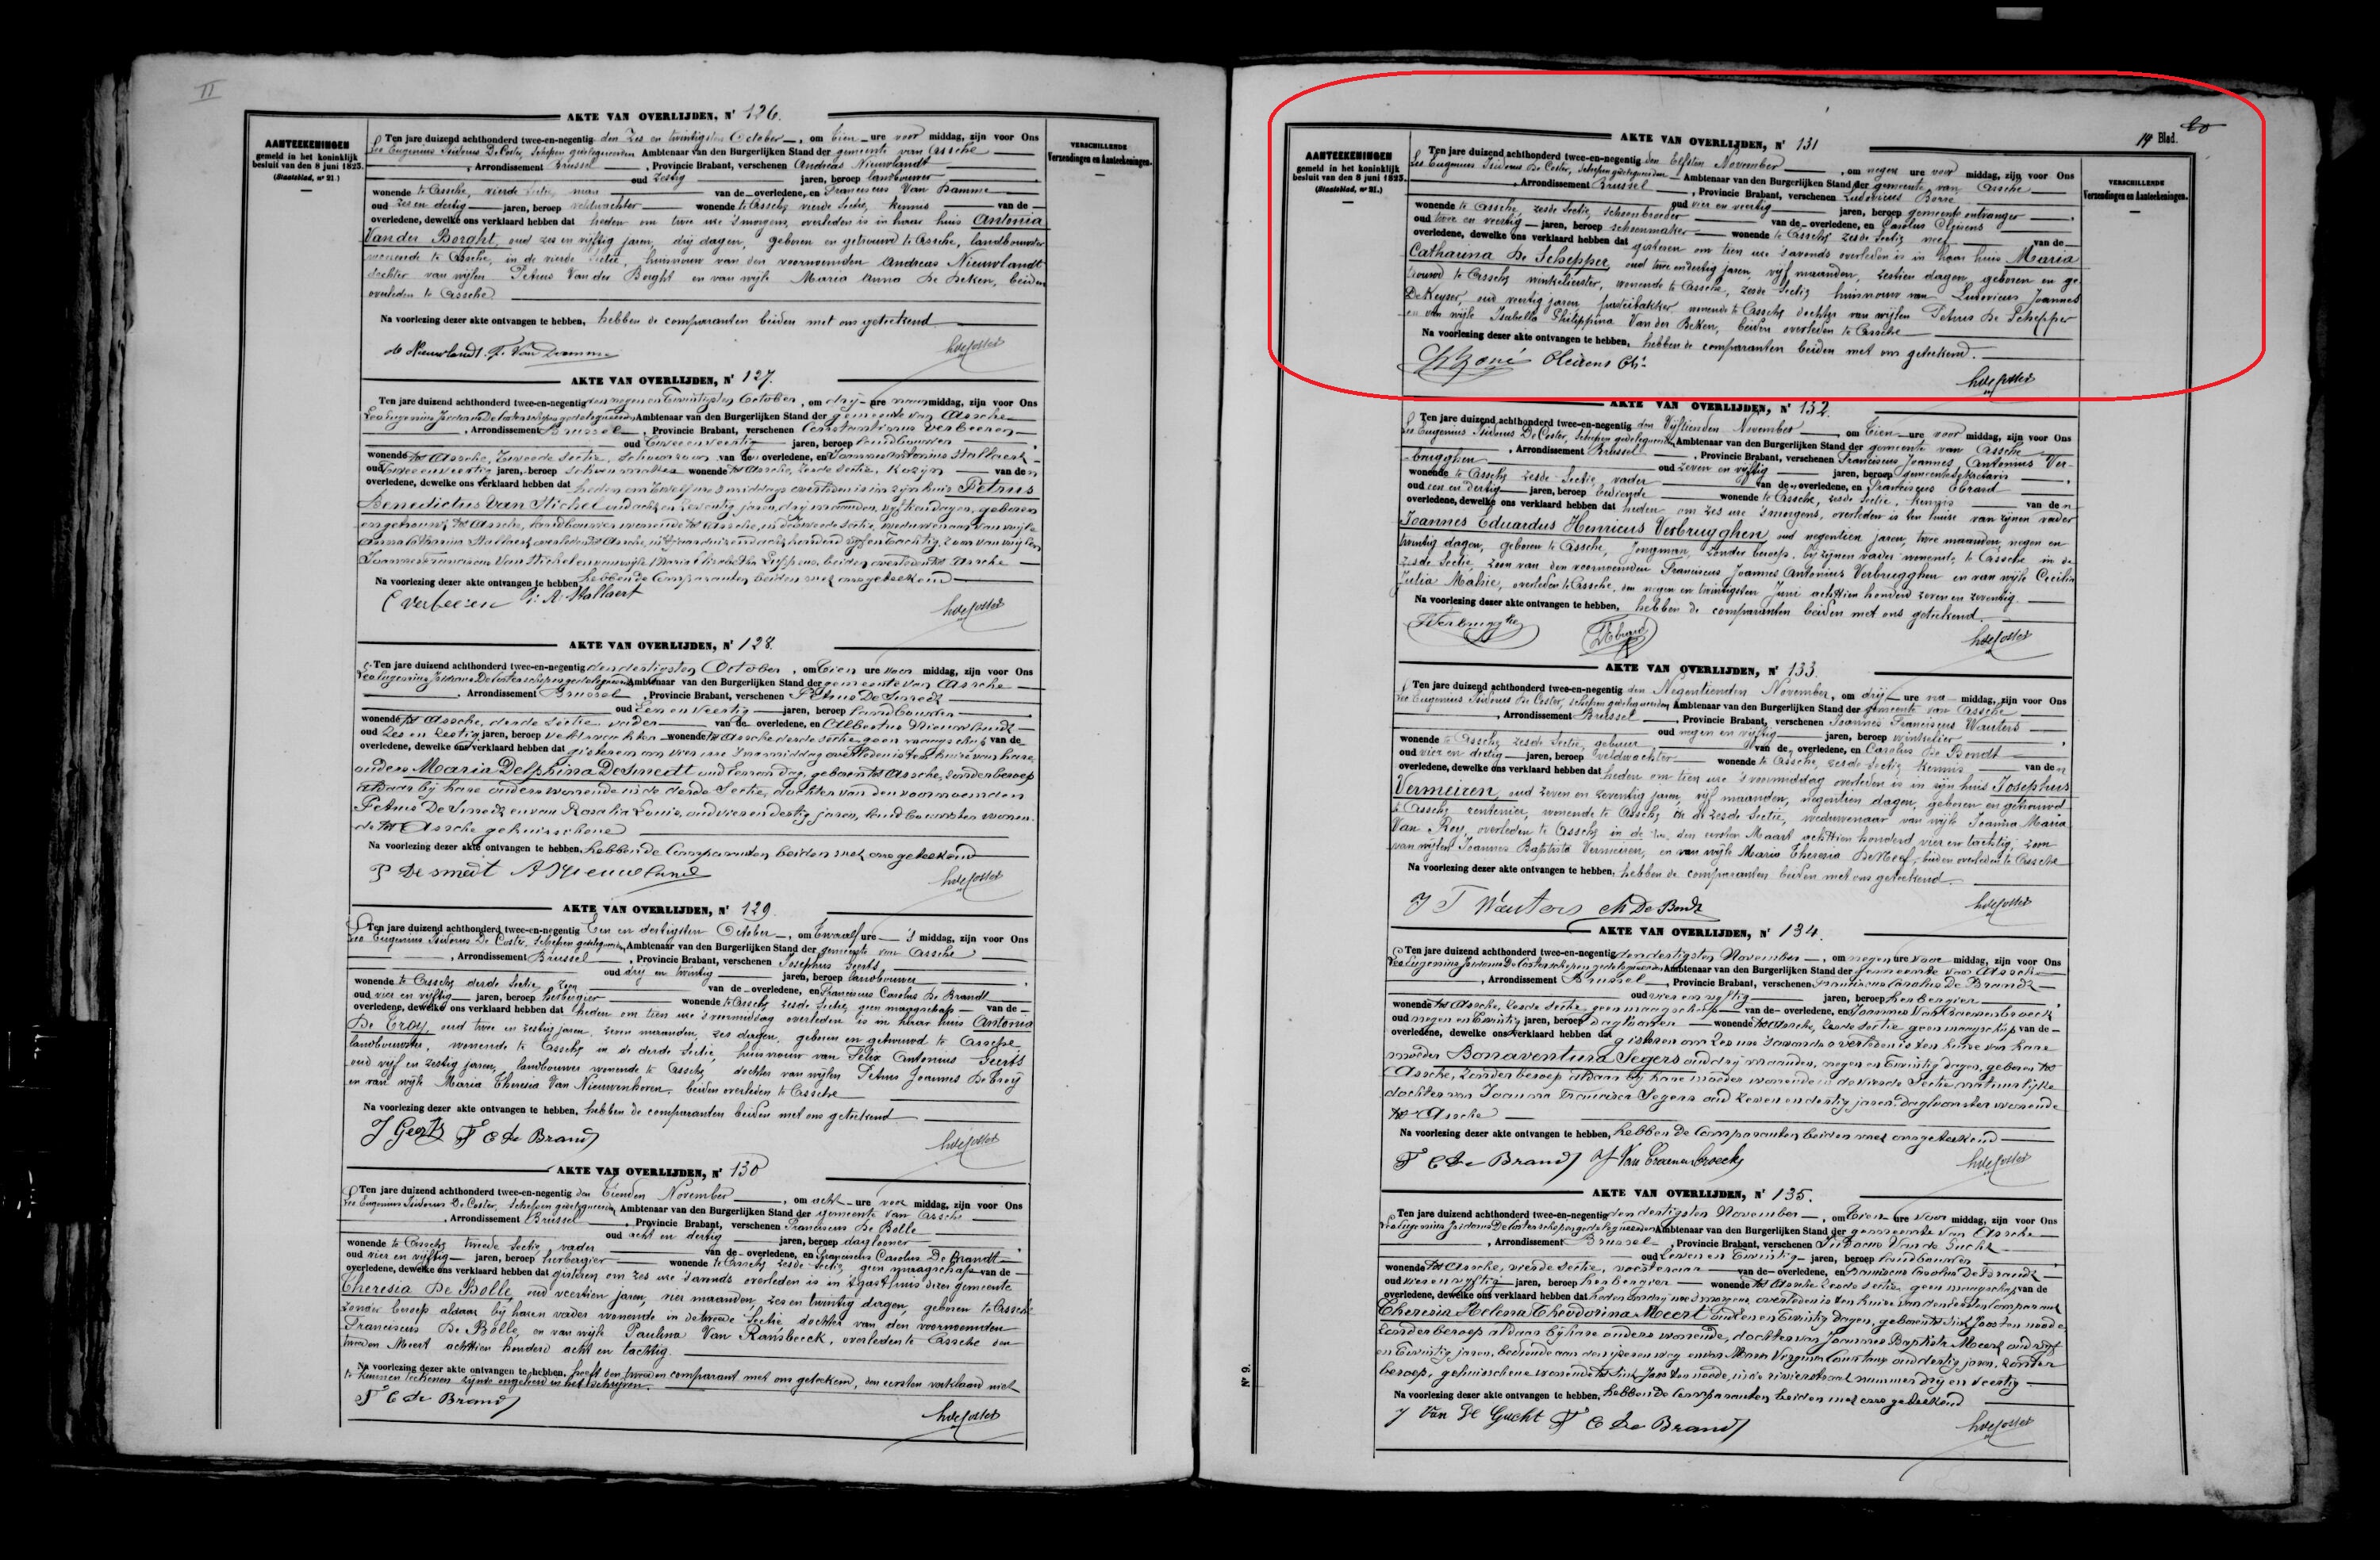 II
AKTE VAN OVERLIJDEN, Nr 126.
AANTEEKENINGEN
gemeld in het koninklijk
besluit van den 8 juni 1823.
(Staatsblad, nr 21.)
VERSCHILLENDE
Verzendingen en Aanteekeningen.
Ten jare duizend achthonderd twee-en-negentig den Zes en twintigsten October, om tien ure voor middag, zijn voor Ons
Leo Eugenius Isidorus De Coster, schepen gedelegueerden Ambtenaar van den Burgerlijken Stand der gemeente van Assche
, Arrondissement Brussel, Provincie Brabant, verschenen Andreas Nieuwlandt
oud zestig jaren, beroep landbouwer
wonende te Assche, vierde Sectie, man van de overledene, en Franciscus Van Damme
oud zes en dertig jaren, beroep veldwachter wonende te Assche, vierde Sectie, kennis van de
overledene, dewelke ons verklaard hebben dat heden om twee ure 's morgens, overleden is in haar huis Antonia
Van der Borght, oud zes en vijftig jaren, drij dagen, geboren en getrouwd te Assche, landbouwster
wonende te Assche, in de vierde Sectie, huisvrouw van den voornoemden Andreas Nieuwlandt
dochter van wijlen Petrus Van der Borght en van wijle Maria Anna De Deken, beiden
overleden te Assche
Na voorlezing dezer akte ontvangen te hebben, hebben de comparanten beiden met ons geteekend.
de Nieuwlandt. F. Van Damme
AKTE VAN OVERLIJDEN, Nr 127.
Ten jare duizend achthonderd twee-en-negentig den negen en Twintigsten October, om drij ure namiddag, zijn voor Ons
Leo Eugenius Isidorus De Coster schepen gedelegueerden Ambtenaar van den Burgerlijken Stand der gemeente van Assche
, Arrondissement Brussel, Provincie Brabant, verschenen Constantinus Verbeeren
oud Twee en veertig jaren, beroep landbouwer
wonende tot Assche, Tweede Sectie, Schoonzoon van den overledene, en Joannes Antonius Stallaert
oud Twee en veertig jaren, beroep schoenmaker wonende tot Assche, zesde Sectie, Kozijn van den
overledene, dewelke ons verklaard hebben dat heden om Twaelf ure 's middags overleden is in zijn huis Petrus
Benedictus Van Stichel oud acht en zeventig jaren, drij maanden, vijftien dagen, geboren
en getrouwd tot Assche, landbouwer wonende tot Assche, in de Tweede Sectie, weduwenaar van wijle
Stallaert overleden tot Assche, in 't jaar duizend acht honderd vijf en Tachtig, zoon van wijlen
Joannes Franciscus Van Stichel en van wijle Maria Elisabetha Luppens, beiden overleden tot Assche
Na voorlezing dezer akte ontvangen te hebben, hebben de Comparanten beiden met ons geteekend
C Verbeeren J. A. Stallaert
AKTE VAN OVERLIJDEN, Nr 128.
Ten jare duizend achthonderd twee-en-negentig den dertigsten October, om Tien ure voor middag, zijn voor Ons
Leo Eugenius Isidorus De Coster schepen gedelegueerden Ambtenaar van den Burgerlijken Stand der gemeente van Assche
, Arrondissement Brussel, Provincie Brabant, verschenen Petrus De Smedt
oud Een en Veertig jaren, beroep landbouwer
wonende tot Assche, derde Sectie, vader van de overledene, en Albertus Nieuwlandt
oud zes en zestig jaren, beroep veldwachter wonende tot Assche derde Sectie geen maagschap van de
overledene, dewelke ons verklaard hebben dat gisteren om vier ure 's namiddag overleden is ten huize van hare
ouders Maria Delphina De Smedt oud Eenen dag, geboren tot Assche, zonder beroep
aldaar bij hare ouders wonende in de derde Sectie, dochter van den voornoemden
Petrus De Smedt en van Rosalia Louis, oud vier en dertig jaren, landbouwster wonen-
de tot Assche gehuisschene
Na voorlezing dezer akte ontvangen te hebben, hebben de Comparanten beiden met ons geteekend
P De smedt A Nieuwland
AKTE VAN OVERLIJDEN, Nr 129
Ten jare duizend achthonderd twee-en-negentig Een en dertigsten October, om Twaalf ure 's middag, zijn voor Ons
Leo Eugenius Isidorus De Coster, schepen gedelegueerden Ambtenaar van den Burgerlijken Stand der gemeente van Assche
, Arrondissement Brussel, Provincie Brabant, verschenen Josephus Geerts
oud drij en twintig jaren, beroep landbouwer
wonende te Assche derde Sectie, zoon van de overledene, en Franciscus Carolus De Brandt
oud vier en vijftig jaren, beroep herbergier wonende te Assche, zesde Sectie, geen maagschap van de
overledene, dewelke ons verklaard hebben dat heden om tien ure 's voormiddag overleden is in haar huis Antonia
De Troy, oud twee en zestig jaren, zeven maanden, zes dagen, geboren en getrouwd te Assche
landbouwster, wonende te Assche in de derde Sectie, huisvrouw van Felix Antonius Geerts
oud vijf en zestig jaren, landbouwer wonende te Assche, dochter van wijlen Petrus Joannes De Troij
en van wijle Maria Theresia Van Nieuwenhoven, beiden overleden te Assche
Na voorlezing dezer akte ontvangen te hebben, hebben de comparanten beiden met ons geteekend
J Geerts F C De Brandt
AKTE VAN OVERLIJDEN, Nr 130
Ten jare duizend achthonderd twee-en-negentig den Tienden November, om acht ure voor middag, zijn voor Ons
Leo Eugenius Isidorus De Coster, schepen gedelegueerden Ambtenaar van den Burgerlijken Stand der gemeente van Assche
, Arrondissement Brussel, Provincie Brabant, verschenen Franciscus De Bolle
oud acht en dertig jaren, beroep daglooner
wonende te Assche tweede Sectie, vader van de overledene, en Franciscus Carolus De Brandt
oud vier en vijftig jaren, beroep herbergier wonende te Assche zesde Sectie, geen maagschap van de
overledene, dewelke ons verklaard hebben dat gisteren om zes ure 's avonds overleden is in 't gasthuis dezer gemeente
Theresia De Bolle, oud veertien jaren, vier maanden, zes en twintig dagen, geboren te Assche
zonder beroep aldaar bij haren vader wonende in de tweede Sectie dochter van den voornoemden
Franciscus De Bolle, en van wijle Paulina Van Ransbeeck, overleden te Assche den
tweeden Meert achttien honderd acht en tachtig.
Na voorlezing dezer akte ontvangen te hebben, heeft den tweeden comparant met ons geteekend, den eersten verklaard niet
te kunnen teekenen zijnde ongeleerd in het schrijven.
F C De Brandt
14 Blad.
AKTE VAN OVERLIJDEN, Nr 131
AANTEEKENINGEN
gemeld in het koninklijk
besluit van den 8 juni 1823.
(Staatsblad, nr 21.)
VERSCHILLENDE
Verzendingen en Aanteekeningen.
Ten jare duizend achthonderd twee-en-negentig den Elfsten November, om negen ure voor middag, zijn voor Ons
Leo Eugenius Isidorus De Coster, schepen gedelegueerden Ambtenaar van den Burgerlijken Stand der gemeente van Assche
, Arrondissement Brussel, Provincie Brabant, verschenen Ludovicus Borré
oud vier en veertig jaren, beroep gemeente ontvanger
wonende te Assche, zesde Sectie, schoonbroeder van de overledene, en Carolus Clerens
oud twee en veertig jaren, beroep schoenmaker wonende te Assche zesde Sectie, neef van de
overledene, dewelke ons verklaard hebben dat gisteren om tien ure 's avonds overleden is in haar huis Maria
Catharina De Schepper, oud twee en dertig jaren, vijf maanden, zestien dagen, geboren en ge-
trouwd te Assche, winkelierster, wonende te Assche, zesde Sectie, huisvrouw van Ludovicus Joannes
De Keyser, oud veertig jaren, pasteibakker, wonende te Assche dochter van wijlen Petrus De Schepper
en van wijle Isabella Philippina Van der Beken, beiden overleden te Assche
Na voorlezing dezer akte ontvangen te hebben, hebben de comparanten beiden met ons geteekend.
AKTE VAN OVERLIJDEN, Nr 132
Ten jare duizend achthonderd twee-en-negentig den Vijftienden November, om Tien ure voor middag, zijn voor Ons
Leo Eugenius Isidorus De Coster, schepen gedelegueerden Ambtenaar van den Burgerlijken Stand der gemeente van Assche
, Arrondissement Brussel, Provincie Brabant, verschenen Franciscus Joannes Antonius Ver-
brugghen oud zeven en vijftig jaren, beroep gemeentesekretaris
wonende te Assche zesde Sectie, vader van den overledene, en Franciscus Ebrard
oud een en dertig jaren, beroep bediende wonende te Assche, zesde Sectie, kennis van den
overledene, dewelke ons verklaard hebben dat heden om zes ure 's morgens, overleden is ten huize van zijnen vader
Joannes Eduardus Henricus Verbrugghen oud negentien jaren, twee maanden, negen en
twintig dagen, geboren te Assche, Jongman, zonder beroep, bij zijnen vader wonende te Assche in de
zesde Sectie, zoon van den voornoemden Franciscus Joannes Antonius Verbrugghen en van wijle Cecilia
Julia Mahie, overleden te Assche, den negen en twintigsten Juni achttien honderd zeven en zeventig.
Na voorlezing dezer akte ontvangen te hebben, hebben de comparanten beiden met ons geteekend.
AKTE VAN OVERLIJDEN, Nr 133
Ten jare duizend achthonderd twee-en-negentig den Negentienden November, om drij ure na middag, zijn voor Ons
Leo Eugenius Isidorus De Coster, schepen gedelegueerden Ambtenaar van den Burgerlijken Stand der gemeente van Assche
, Arrondissement Brussel, Provincie Brabant, verschenen Joannes Franciscus Wauters
oud negen en vijftig jaren, beroep winkelier
wonende te Assche, zesde Sectie, gebuur van de overledene, en Carolus De Bondt
oud vier en dertig jaren, beroep veldwachter wonende te Assche, zesde Sectie, kennis van den
overledene, dewelke ons verklaard hebben dat heden om tien ure 's voormiddag overleden is in zijn huis Josephus
Vermeiren, oud zeven en zeventig jaren, vijf maanden, negentien dagen, geboren en getrouwd
te Assche, rentenier, wonende te Assche, in de zesde Sectie, weduwenaar van wijle Joanna Maria
Van Roy, overleden te Assche in de den Maart achttien honderd vier en tachtig, zoon
van wijlen Joannes Baptista Vermeiren, en van wijle Maria Theresia De Neef, beiden overleden te Assche
Na voorlezing dezer akte ontvangen te hebben, hebben de comparanten beiden met ons geteekend.
J F Wauters Ch De Bondt
AKTE VAN OVERLIJDEN, Nr 134.
Ten jare duizend achthonderd twee-en-negentig den dertigsten November, om negen ure voor middag, zijn voor Ons
Leo Eugenius Isidorus De Coster schepen gedelegueerden Ambtenaar van den Burgerlijken Stand der gemeente van Assche
, Arrondissement Brussel, Provincie Brabant, verschenen Franciscus Carolus De Brandt
oud vier en vijftig jaren, beroep herbergier
wonende tot Assche, zesde Sectie, geen maagschap van de overledene, en Joannes Van Craenenbroeck
oud negen en Twintig jaren, beroep daglooner wonende tot Assche, zesde Sectie geen maagschap van de
overledene, dewelke ons verklaard hebben dat gisteren om zes ure 's avonds overleden is ten huize van hare
moeder Bonaventura Segers oud drij maanden, negen en Twintig dagen, geboren tot
Assche, zonder beroep aldaar bij hare moeder wonende in de vierde Sectie, natuurlijke
dochter van Joanna Francisca Segers oud zeven en dertig jaren, dagloonster wonende
tot Assche
Na voorlezing dezer akte ontvangen te hebben, hebben de Comparanten beiden met ons geteekend
F C De Brandt J Van Craenenbroeck
AKTE VAN OVERLIJDEN, Nr 135.
Ten jare duizend achthonderd twee-en-negentig den dertigsten November, om Tien ure voor middag, zijn voor Ons
Leo Eugenius Isidorus De Coster schepen gedelegueerden Ambtenaar van den Burgerlijken Stand der gemeente van Assche
, Arrondissement Brussel, Provincie Brabant, verschenen Van de Gucht
oud zeven en Twintig jaren, beroep landbouwer
wonende tot Assche, vierde Sectie, voestervaar van de overledene, en Franciscus Carolus De Brandt
oud vier en vijftig jaren, beroep herbergier wonende tot Assche zesde Sectie geen maagschap van de
overledene, dewelke ons verklaard hebben dat heden om drij ure 's morgens, overleden is ten huize van den eersten comparant
Theresia Helena Theodorina Meert oud een en Twintig dagen, geboren tot Sint Joost ten noode
zonder beroep aldaar bij hare ouders wonende, dochter van Joannes Baptista Meert oud vijf
en Twintig jaren, bediende aan den ijzeren weg en van Maria Virginia Constant oud dertig jaren, zonder
beroep, gehuisschene wonende tot Sint Joost ten noode, in de rivierstraat nummer drij en veertig
Na voorlezing dezer akte ontvangen te hebben, hebben de Comparanten beiden met ons geteekend
J Van De Gucht F C De Brandt
Nr 9.